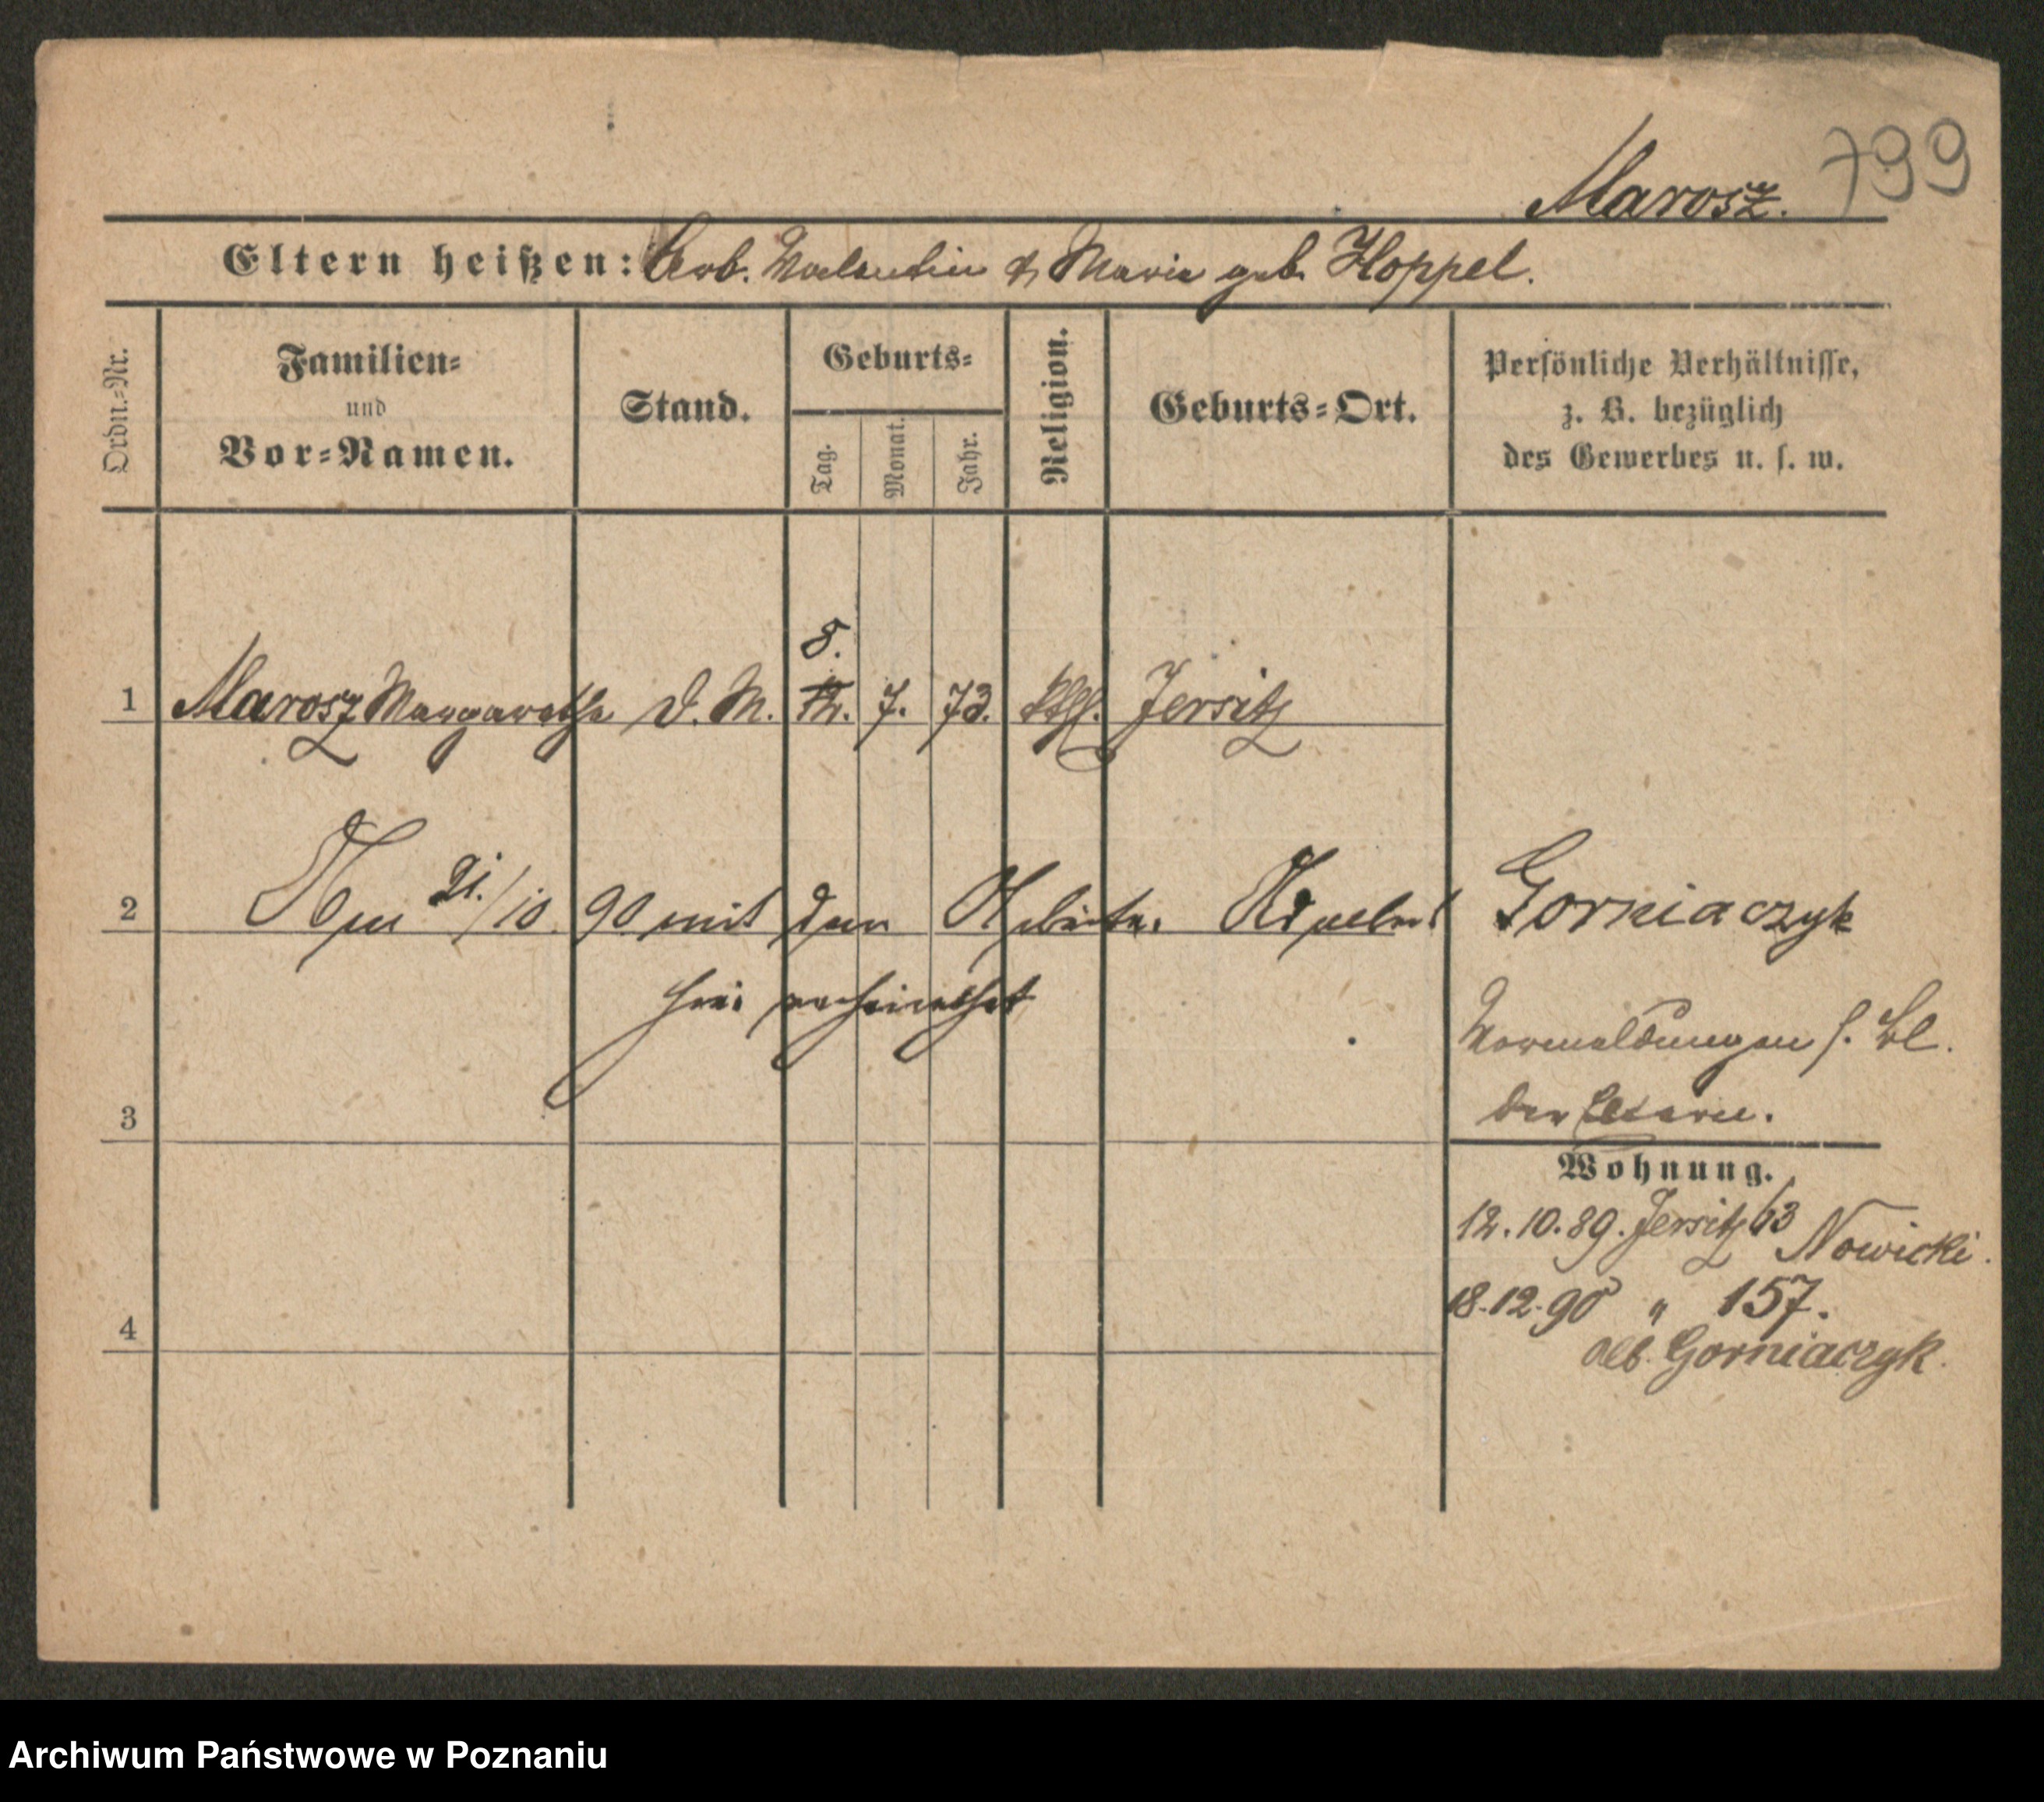 799
Marosz.
Eltern heißen: Arb. Valentin & Maria geb. Hoppel.
Ordn.-Nr.
Familien-
und
Vor-Namen.
Stand.
Geburts-
Tag.
Monat.
Jahr.
Religion.
Geburts-Ort.
Persönliche Verhältnisse,
z. B. bezüglich
des Gewerbes u. s. w.
8.
1 Marosz Margarethe D. M. 12. 7. 73. kth. Jersitz
2 21./10. 90 mit dem Arbeiter Adalbert Gorniaczyk
hier verheirathet
Vormeldungen s. Bl.
3 der Eltern.
Wohnung.
12.10.89. Jersitz 63 Nowicki.
18.12.90 " 157.
4 Gorniaczyk.
Archiwum Państwowe w Poznaniu